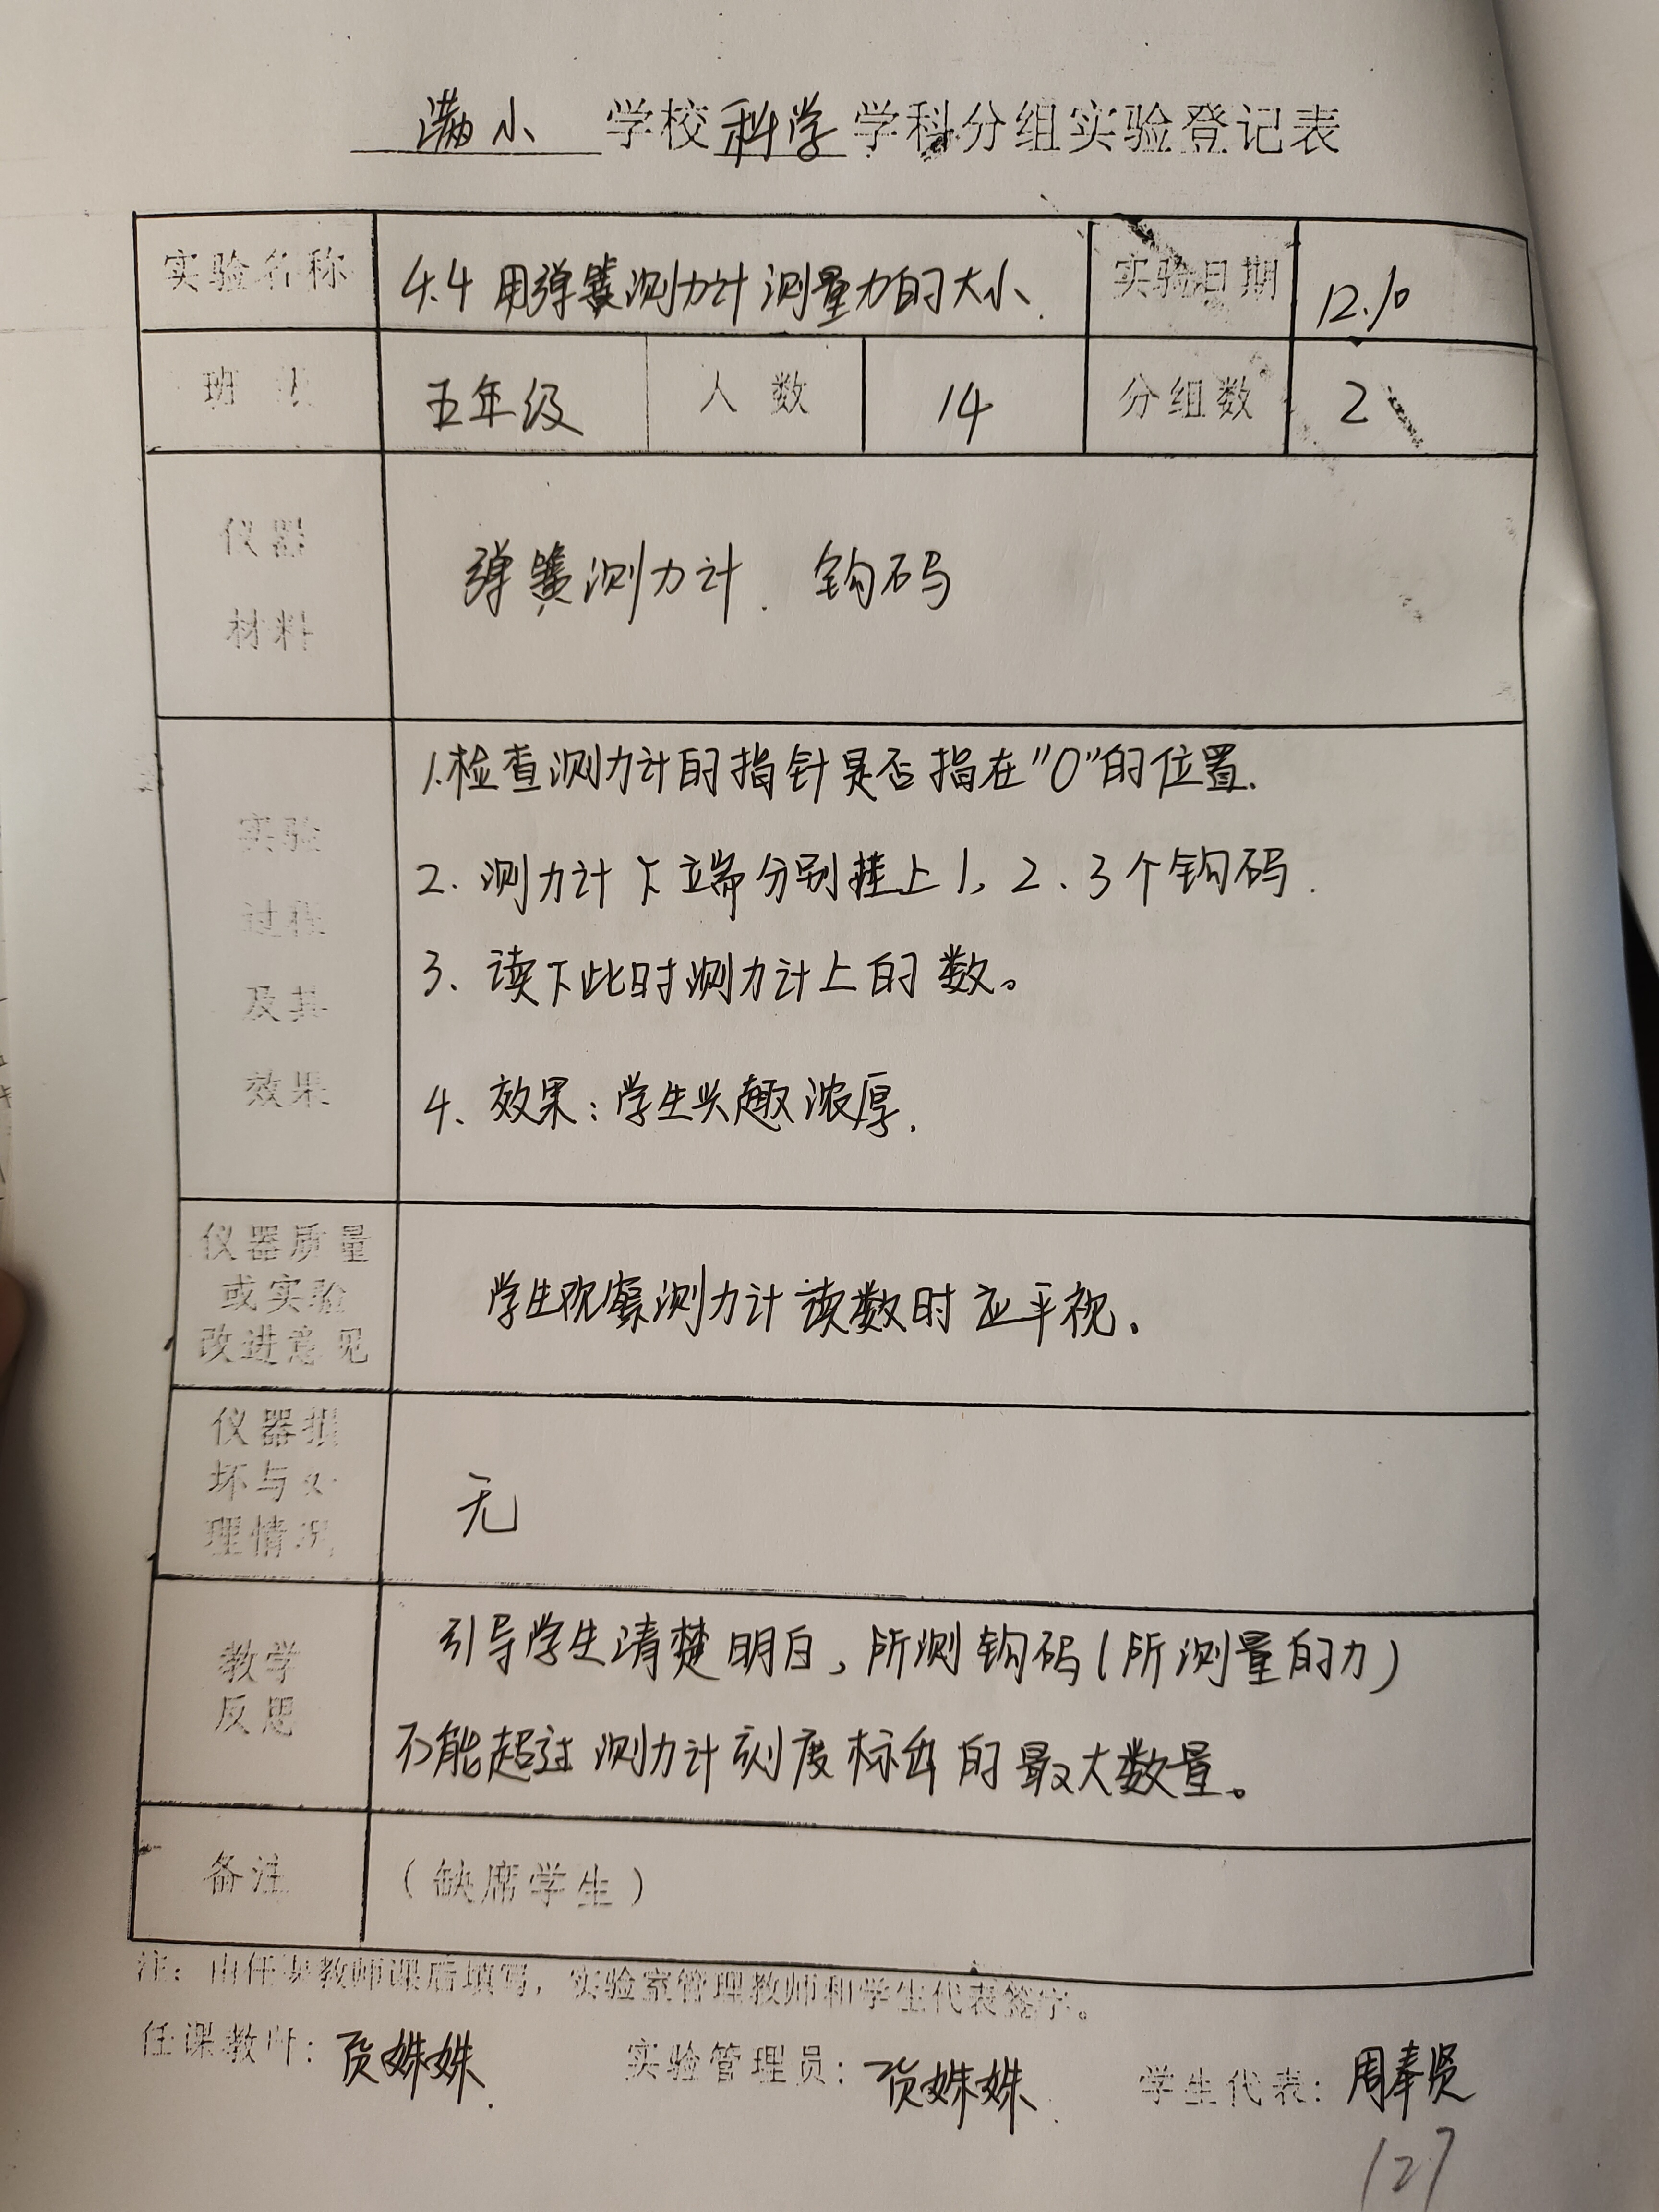 满小 学校 科学 学科分组实验登记表
实验名称 4.4 用弹簧测力计测量力的大小. 实验日期 12.10
班 五年级 人数 14 分组数 2
仪器
材料
弹簧测力计. 钩码
实验
过程
及其
效果
1.检查测力计的指针是否指在"0"的位置.
2. 测力计下立端分别挂上1, 2、3个钩码.
3、读下此时测力计上的数。
4、效果:学生兴趣浓厚.
仪器质量
或实验
改进意见
学生观察测力计读数时应平视.
仪器损
坏与处
理情况
无
教学
反思
引导学生清楚明白,所测钩码(所测量的力)
不能超过测力计刻度标出的最大数量。
备注 (缺席学生)
注:由任课教师课后填写,实验室管理教师和学生代表签字。
任课教师: 姝姝. 实验管理员: 姝姝. 学生代表: 周奉贤
127